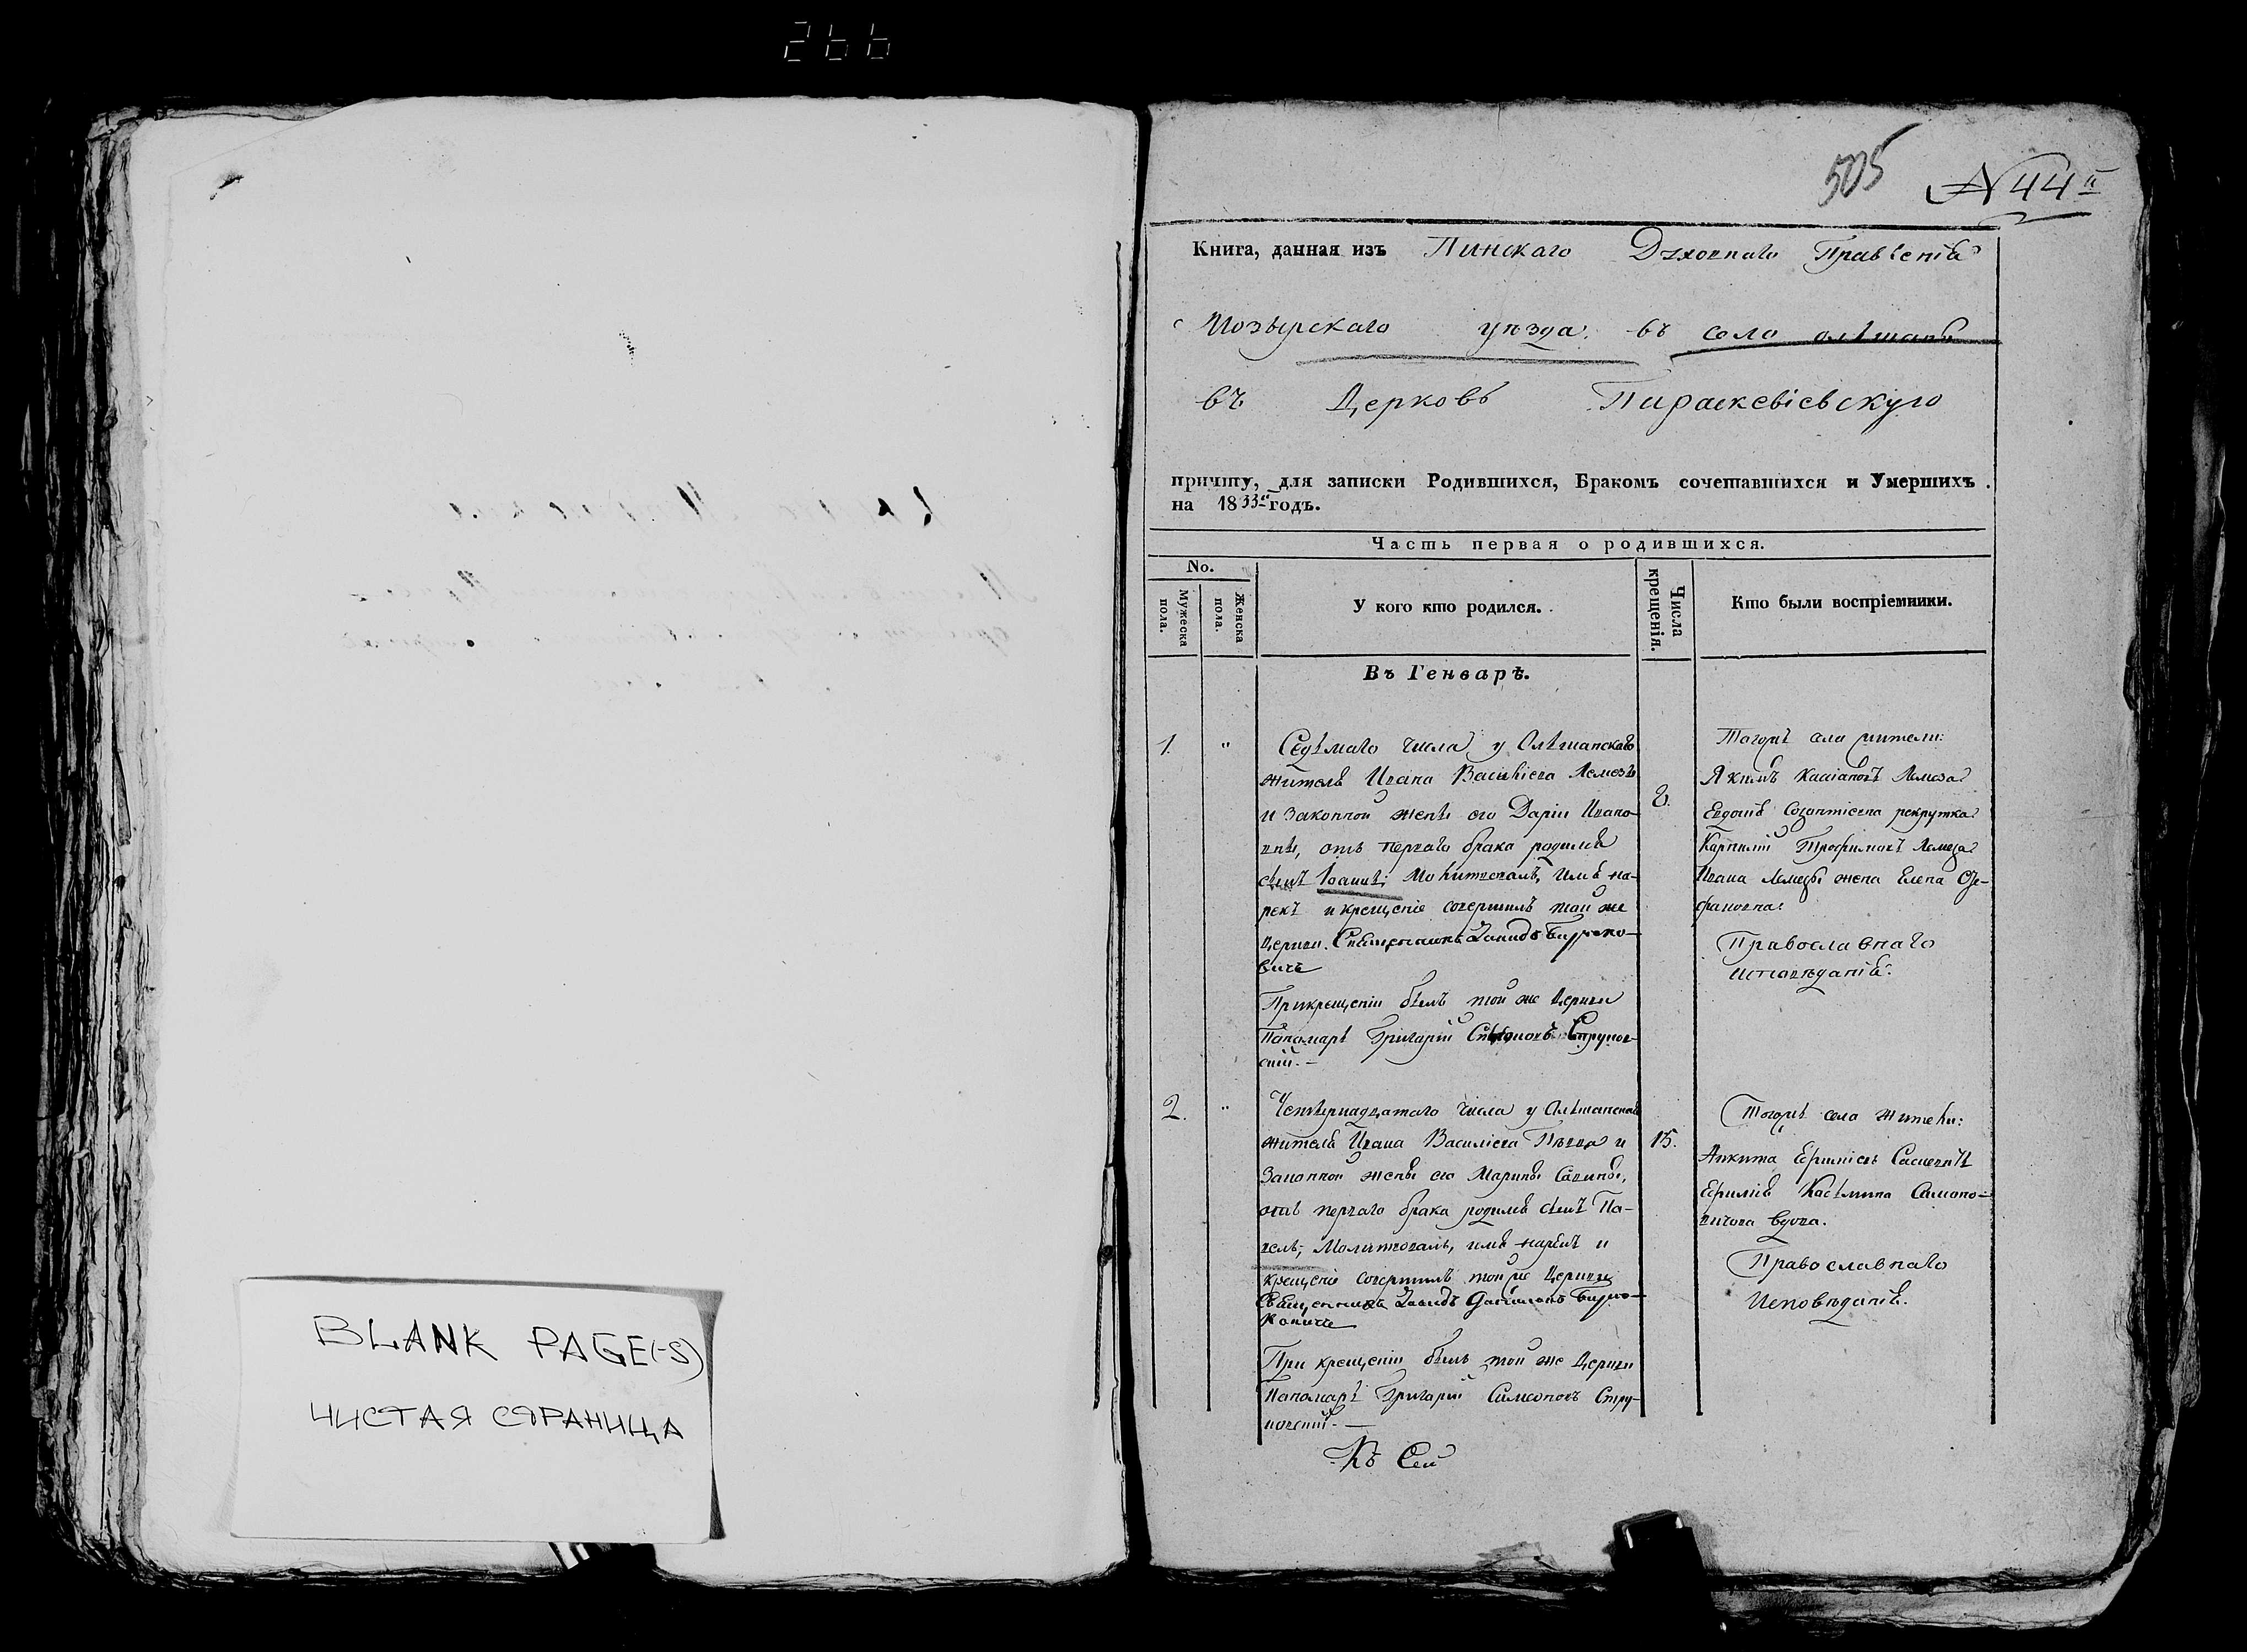 266
BLANK PAGE(-S)
ЧИСТАЯ СТРАНИЦА
505 №44й
Книга, данная изъ Пинскаго Духовнаго Правленія
Мозырскаго уѣзда въ село олшаны
въ Церковь Параскевіевскую
причту, для записки Родившихся, Бракомъ сочетавшихся и Умершихъ
на 1833й годъ.
Часть первая о родившихся.
No.
Мужеска пола.
Женска пола.
У кого кто родился.
Числа крещенія.
Кто были воспріемники.
Въ Генварѣ.
1. " Седьмаго числа у Ольшанскаго
жителя Ивана Василіева Лемезы
и законной жены его Даріи Ивано-
вны, отъ перваго брака родился
сынъ Іоаннъ; Молитвовалъ, имя на-
рекъ и крещеніе совершилъ той же
Церкви Священникъ Давидъ
вичъ
При крещеніи былъ той же Церкви
Пономарь Григорій Струнев-
скій.—
8.
Тогожъ села жители:
Якимъ Касіановъ Лемеза
рекрутка
Трофимовъ Лемеза
Ивана Лемезы жена Елена Сте-
фановна.
Православнаго
исповѣданія.
2. " Четвернадцатаго числа у Ольшанскаго
жителя Ивана Василіева и
Законной жены его Марины Савины,
отъ перваго брака родился сынъ Па-
велъ; Молитвовалъ, имя нарекъ и
крещеніе совершилъ той же Церкви
Священникъ Давидъ
ковичъ
При крещеніи былъ той же Церкви
Пономарь Григорій Симеоновъ Стру-
невскій.—
15.
Тогожъ села жители:
Симоно-
вичова вдова.
Православнаго
Исповѣданія.
Къ Сей